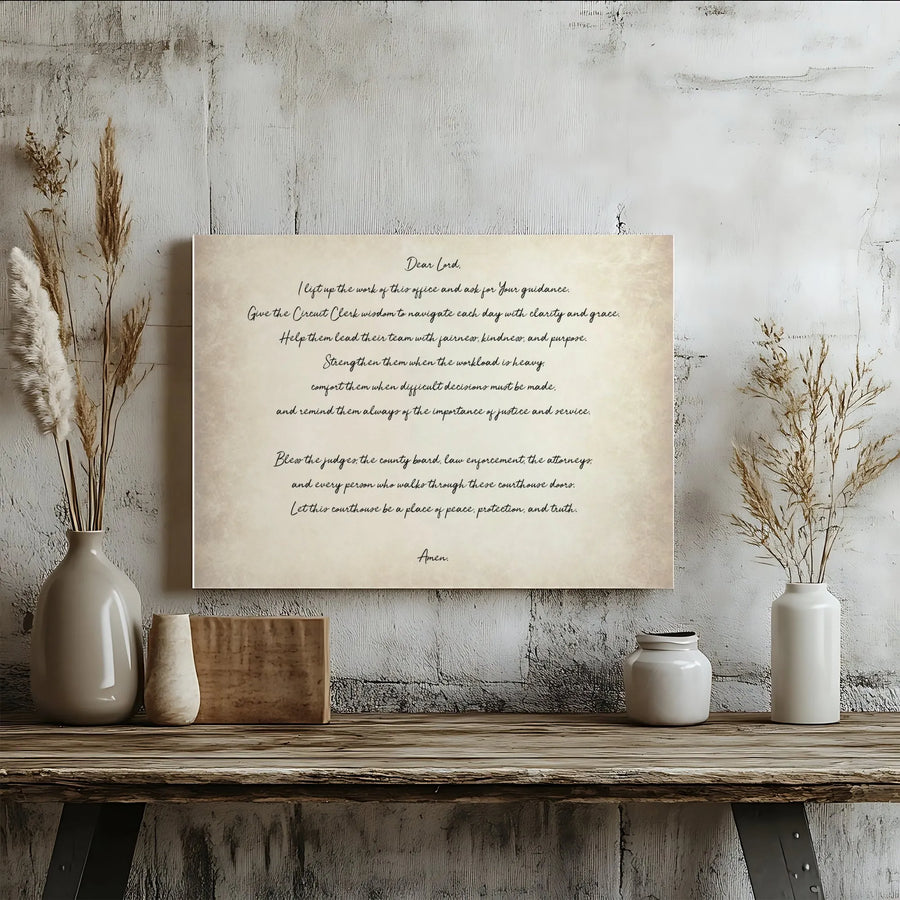 Dear Lord,
I lift up the work of this office and ask for Your guidance.
Give the Circuit Clerk wisdom to navigate each day with clarity and grace.
Help them lead their team with fairness, kindness, and purpose.
Strengthen them when the workload is heavy,
comfort them when difficult decisions must be made,
and remind them always of the importance of justice and service.
Bless the judges, the county board, law enforcement, the attorneys,
and every person who walks through these courthouse doors.
Let this courthouse be a place of peace, protection, and truth.
Amen.